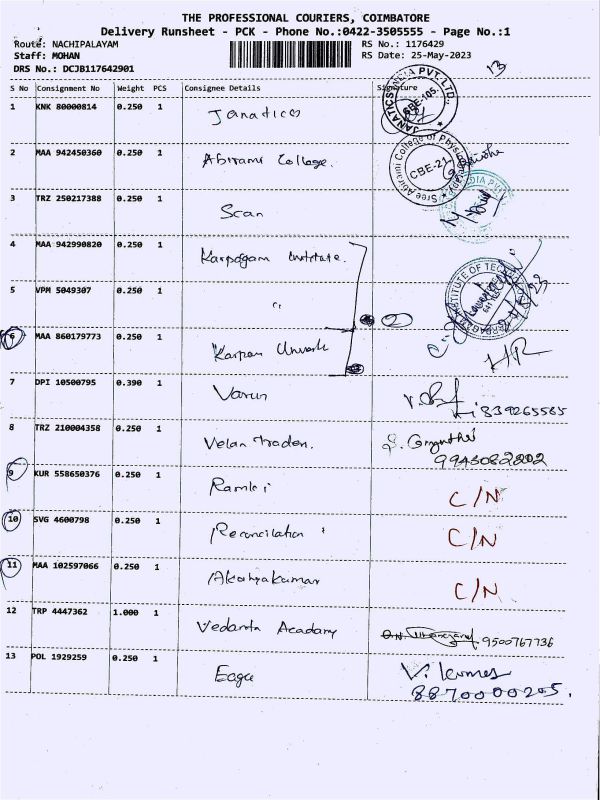 THE PROFESSIONAL COURIERS, COIMBATORE
Delivery Runsheet - PCK - Phone No.:0422-3505555 - Page No.:1
Route: NACHIPALAYAM RS No.: 1176429
Staff: MOHAN RS Date: 25-May-2023
DRS No.: DCJB117642901
13
S No Consignment No Weight PCS Consignee Details Signature
JANATICS INDIA PVT. LTD., CBE-105.
1 KNK 80000814 0.250 1 Janatics
Sree Abirami College of Physio CBE-21
2 MAA 942450360 0.250 1 Abirami College.
3 TRZ 250217388 0.250 1 Scan
4 MAA 942990820 0.250 1 Karpagam Institute.
INSTITUTE OF TEC
5 VPM 5049307 0.250 1 "
2
6 MAA 860179773 0.250 1 Karpam
7 DPI 10500795 0.390 1 Varun
839265585
8 TRZ 210004358 0.250 1 Velan Traders.
9943082802
9 KUR 558650376 0.250 1 C/N
10 SVG 4600798 0.250 1 Reconcilation C/N
11 MAA 102597066 0.250 1 C/N
12 TRP 4447362 1.000 1 Vedanta Acadamy 9500767736
13 POL 1929259 0.250 1 V. Kumar
8870000205.